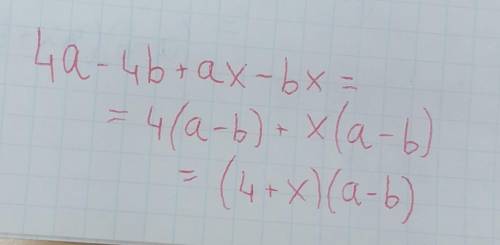 4a - 4b + ax - bx =
= 4(a - b) + x(a - b)
= (4 + x)(a - b)